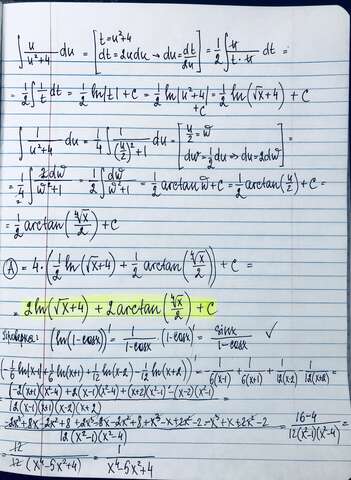 ∫ u/(u²+4) du = [t=u²+4 dt=2udu → du=dt/2u] = 1/2 ∫ u/(t·u) dt =
= 1/2 ∫ 1/t dt = 1/2 ln|t| + C = 1/2 ln|u²+4| + C = 1/2 ln(√x+4) + C
∫ 1/(u²+4) du = 1/4 ∫ 1/((u/2)²+1) du = [u/2 = w dw = 1/2 du → du=2dw] =
= 1/4 ∫ 2dw/(w²+1) = 1/2 ∫ dw/(w²+1) = 1/2 arctan w + C = 1/2 arctan(u/2) + C =
= 1/2 arctan(⁴√x/2) + C
Ⓐ = 4·(1/2 ln(√x+4) + 1/2 arctan(⁴√x/2)) + C =
= 2 ln(√x+4) + 2 arctan(⁴√x/2) + C
(ln(1-cosx))' = 1/(1-cosx) · (1-cosx)' = sinx/(1-cosx) ✓
(-1/6 ln(x-1) + 1/6 ln(x+1) + 1/12 ln(x-2) - 1/12 ln(x+2))' = -1/6(x-1) + 1/6(x+1) + 1/12(x-2) - 1/12(x+2) =
= (-2(x+1)(x²-4) + 2(x-1)(x²-4) + (x+2)(x²-1) - (x-2)(x²-1))/12(x-1)(x+1)(x-2)(x+2) =
12(x²-1)(x²-4) = (16-4)/12(x²-1)(x²-4) =
= 12/12(x⁴-5x²+4) = 1/(x⁴-5x²+4)